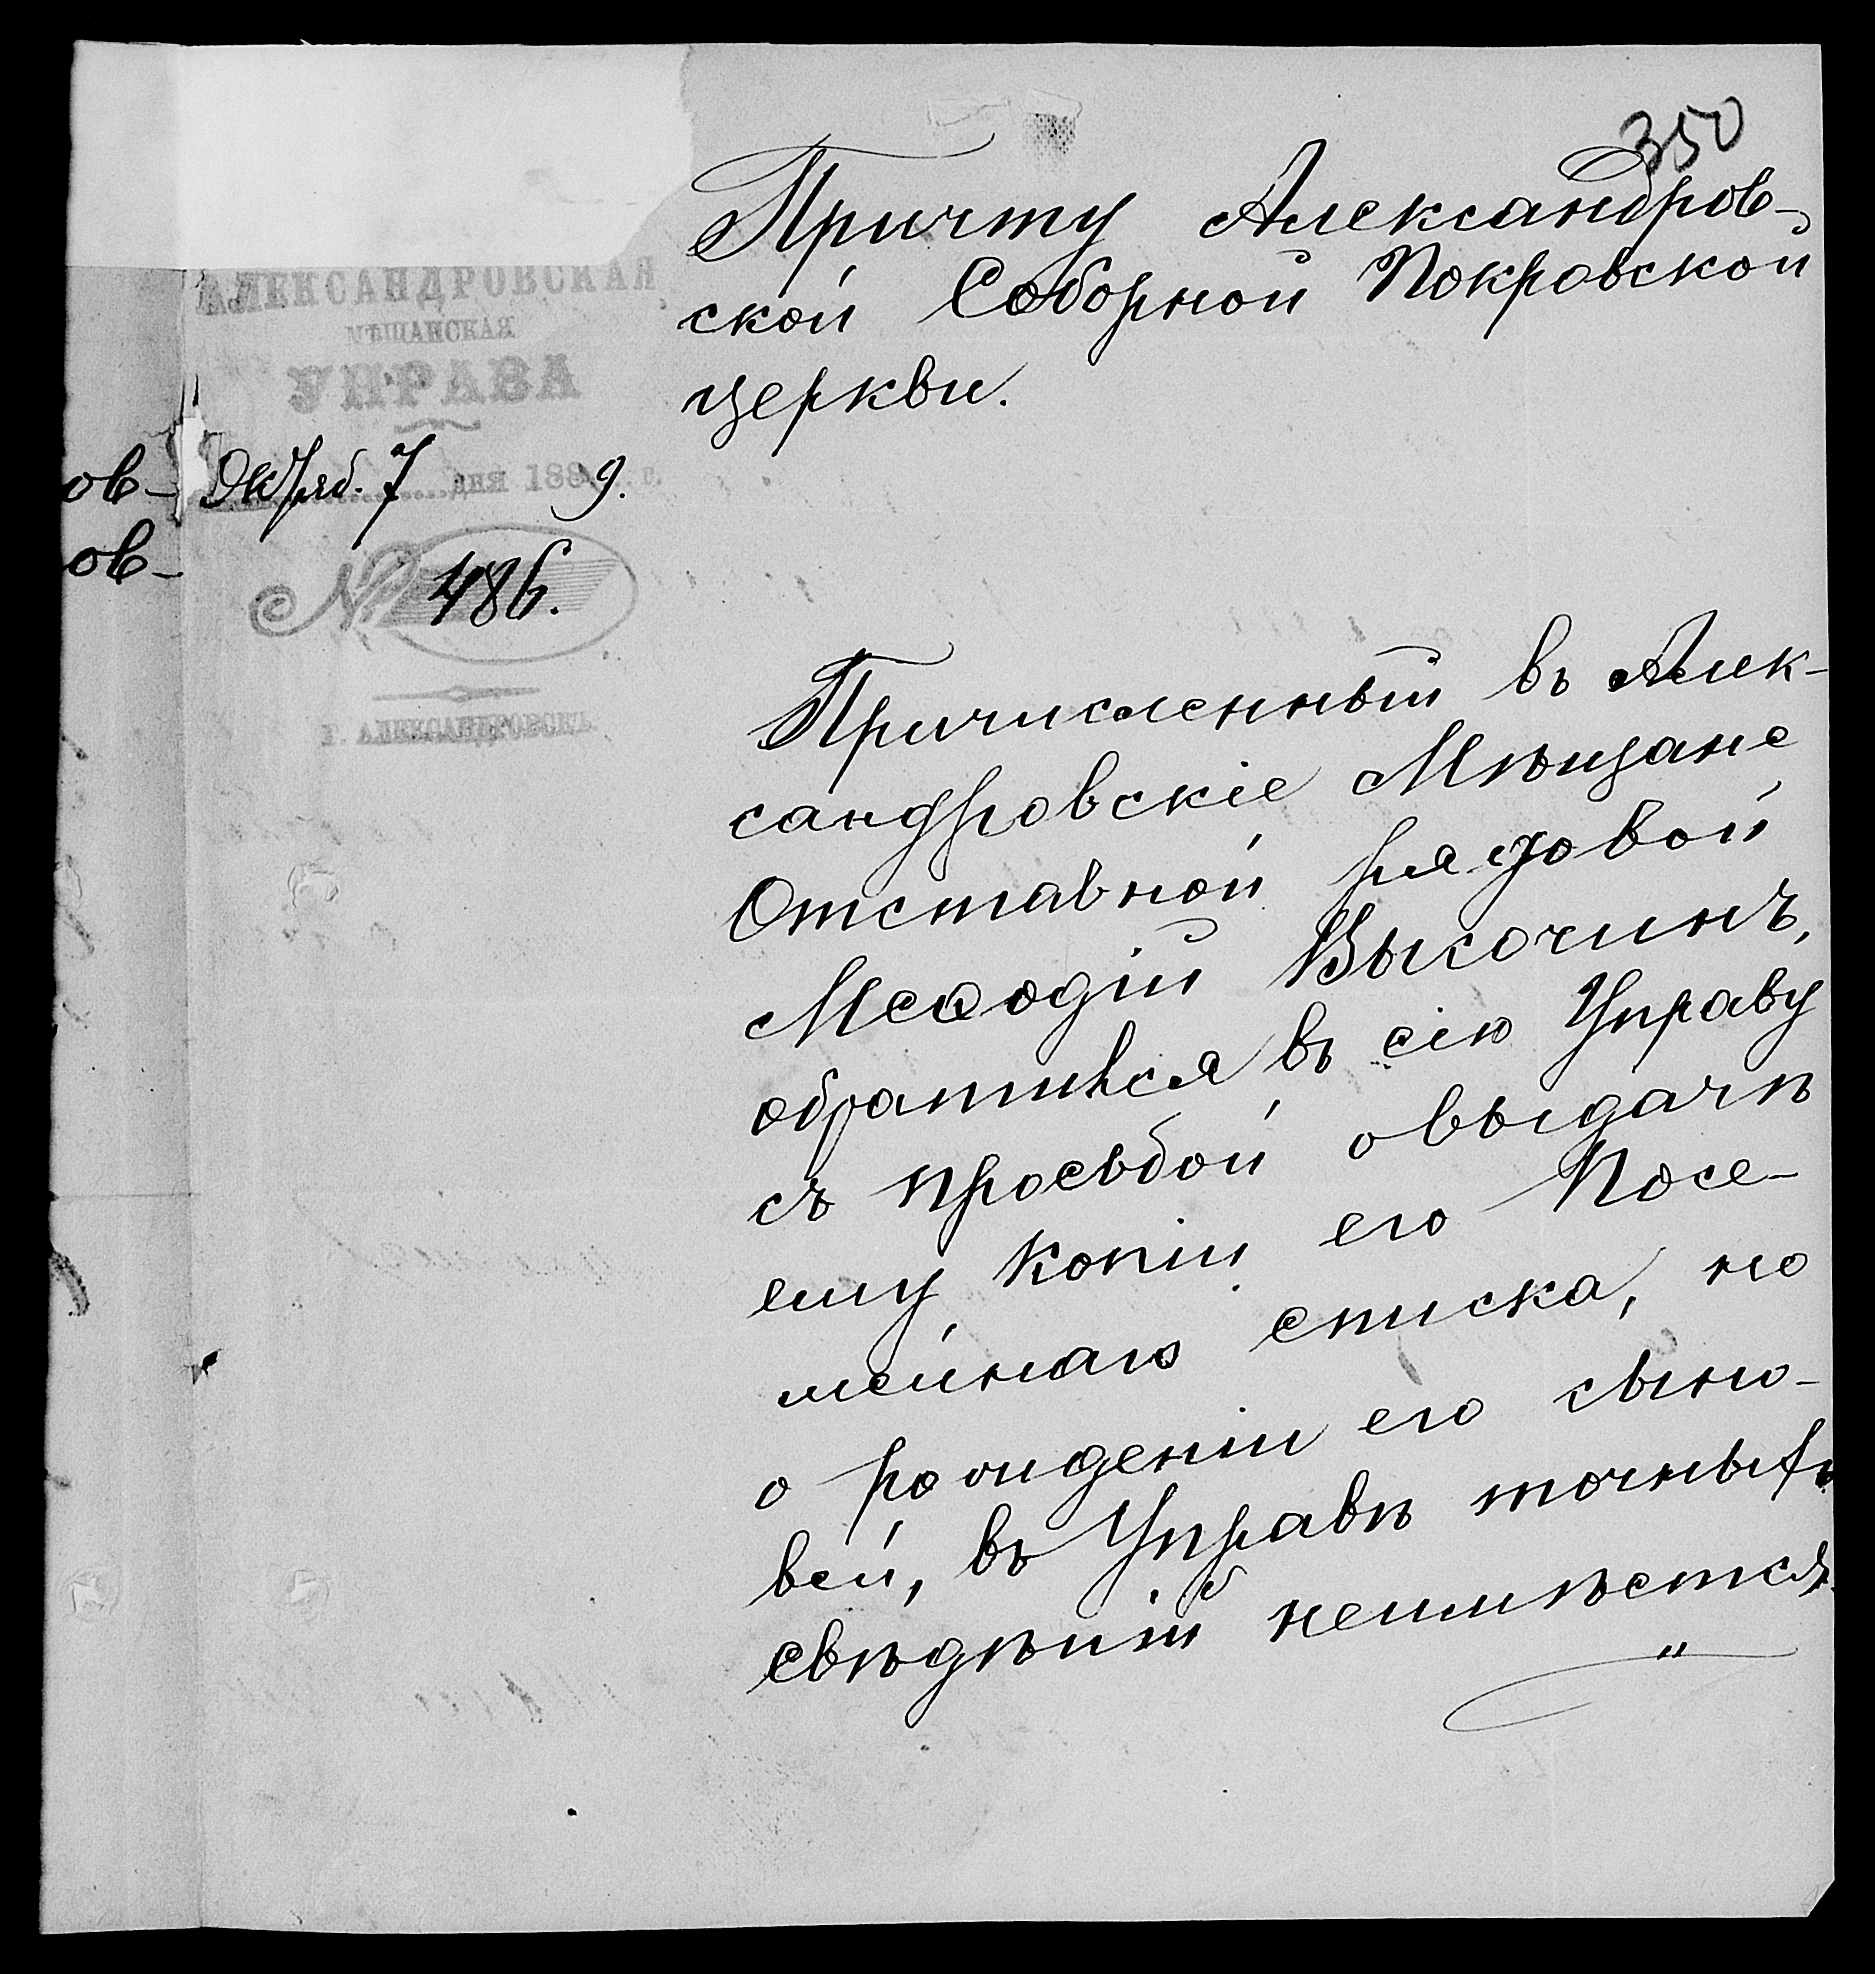 350
Причту Александров-
ской Соборной Покровской
церкви.
АЛЕКСАНДРОВСКАЯ
МѢЩАНСКАЯ
УПРАВА
ов-
Октяб. 7 дня 1889. г.
ов-
№ 486.
Г. АЛЕКСАНДРОВСКЪ.
Причисленный въ Алек-
сандровскіе Мѣщане
Отставной рядовой
Меѳодій Высочинъ,
обратился въ сію Управу
съ просьбой о выдачѣ
ему копіи его Посе-
мейнаго списка, но
о рожденіи его сыно-
вей, въ Управѣ точныхъ
свѣдѣній неимѣется
"